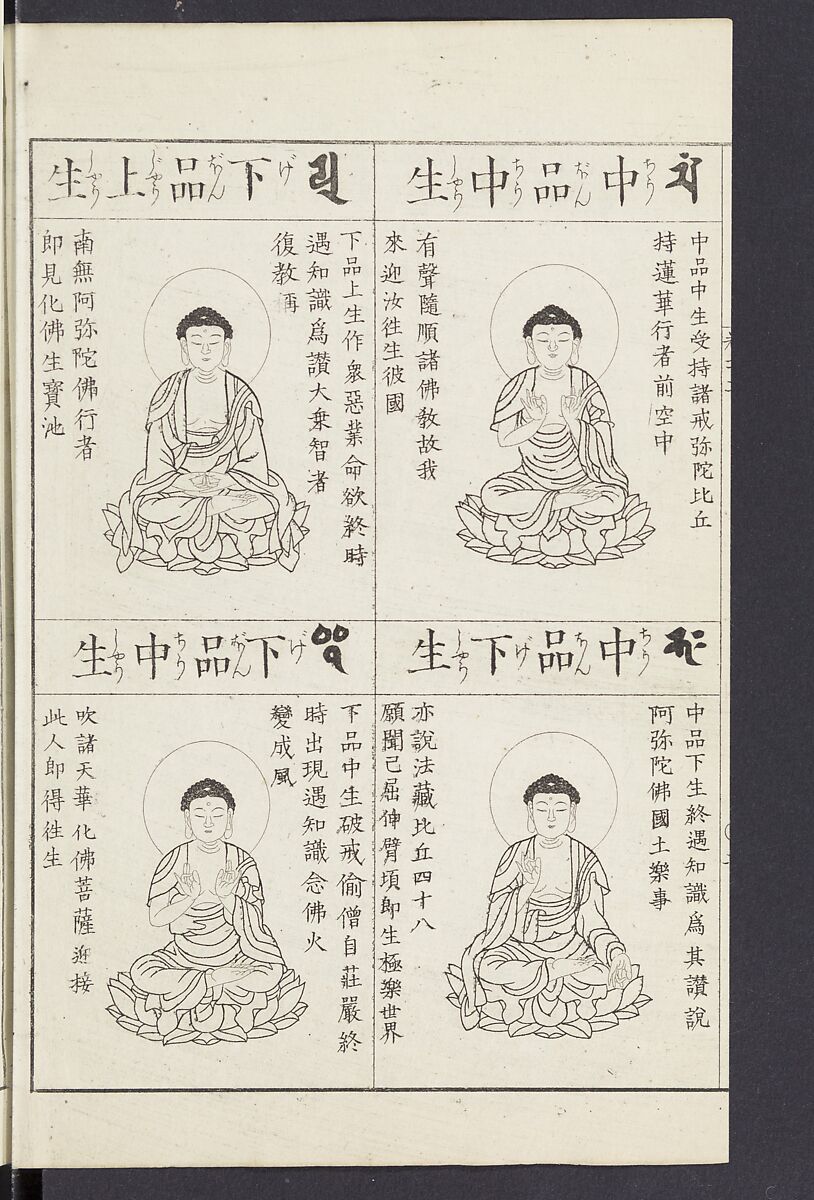 中品中生
ちうぼんちうしやう
中品中生受持諸戒弥陀比丘
持蓮華行者前空中
有聲隨順諸佛教故我
來迎汝徃生彼國
中品下生
ちうぼんげしやう
中品下生終遇知識爲其讃說
阿弥陀佛國土樂事
亦說法藏比丘四十八
願聞已屈伸臂頃即生極樂世界
下品上生
げぼんじやうしやう
下品上生作衆惡業命欲終時
遇知識爲讃大乗智者
復教再
南無阿弥陀佛行者
即見化佛生寳池
下品中生
げぼんちうしやう
下品中生破戒偷僧自莊嚴終
時出現遇知識念佛火
變成風
吹諸天華化佛菩薩迎接
此人即得徃生